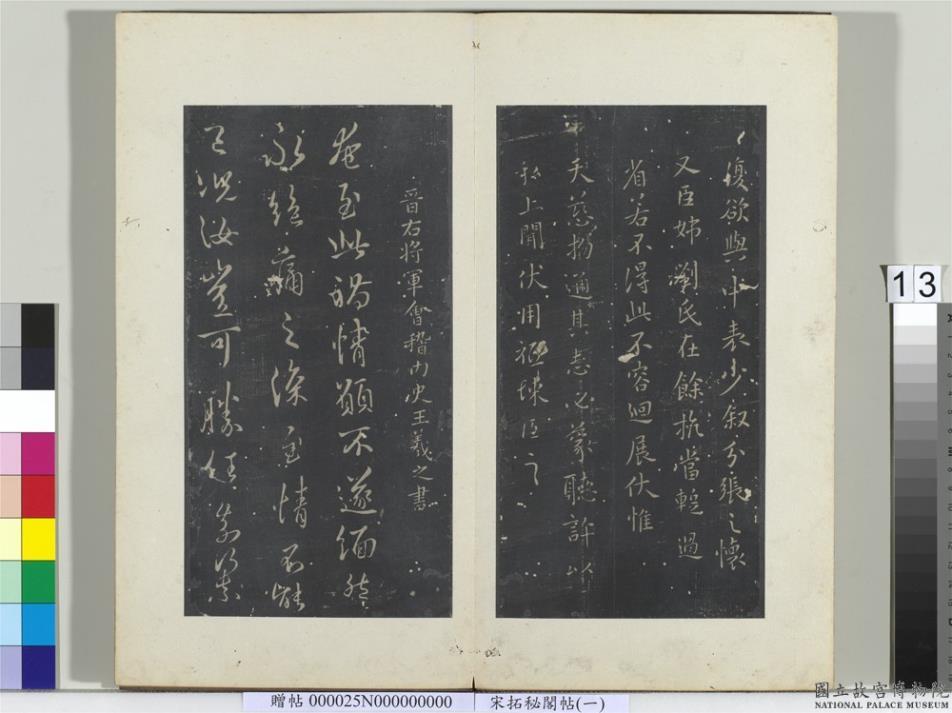 復欲與中表少叙分張之懷
又臣姊劉氏在餘杭當蹔過
省若不得此不容迴展伏惟
天慈物通其志必蒙聽許以
上聞伏用悚臣之
晋右將軍會稽内史王羲之書
奄至此禍情願不遂緬然
永絶痛之深至情不能
已況汝豈可勝任
13
贈帖 000025N000000000 宋拓秘閣帖(一)
國立故宮博物院
NATIONAL PALACE MUSEUM